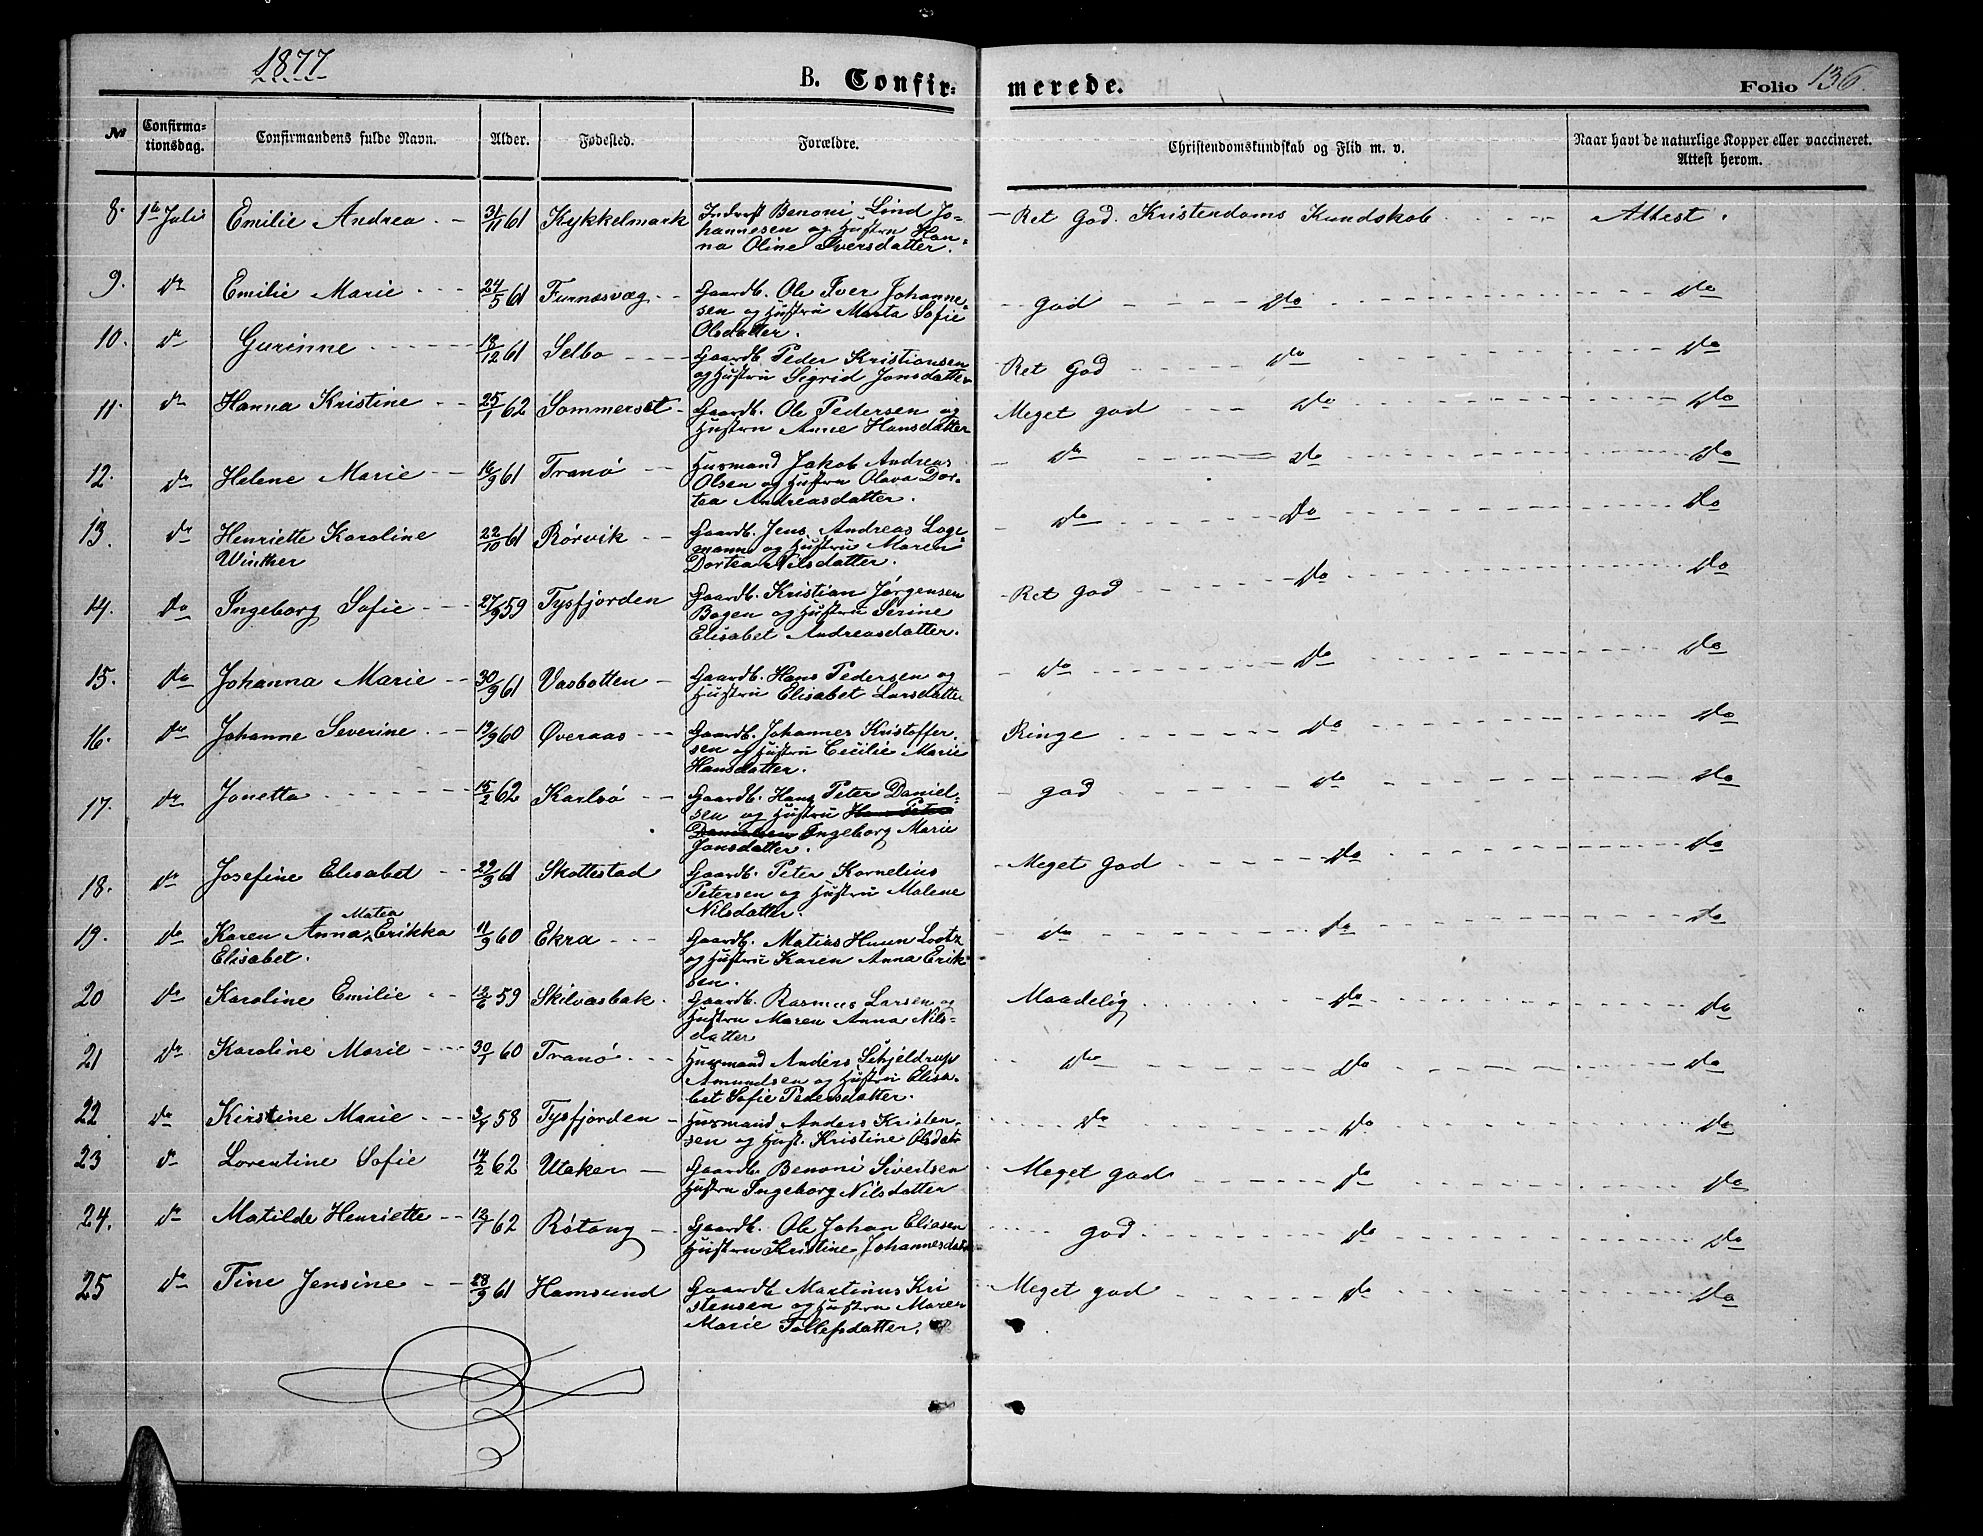 1877
B. Confir- merede. Folio 136.
No Confirma- tionsdag. Confirmandens fulde Navn. Alder. Fødested. Forældre. Christendomskundskab og Flid m. v. Naar havt de naturlige Kopper eller vaccineret. Attest herom.
8. 1ste Juli Emilie Andrea 31/11 61 Kykkelmark Inderst Benoni Lind Jo-
hannesen og Hustru Han-
na Oline Iversdatter. Ret God. Kristendoms Kundskab Attest.
9. do Emilie Marie 24/5 61 Furnæsvæg Gaardb. Ole Iver Johanne-
sen og Hustru Marta Sofie
Olsdatter. god do do
10. do Gurinne 18/12 61 Selbo Gaardb. Peder Kristiansen
og Hustru Sigrid Jonsdatter Ret God do do
11. do Hanna Kristine 25/1 62 Sommerset Gaardb. Ole Pedersen og
Hustru Anne Hansdatter Meget god do do
12. do Helene Marie 16/9 61 Tranø Husmand Jakob Andreas
Olsen og Hustru Olava Dor-
tea Andreasdatter. do do do
13. do Henriette Karoline
Winther 22/10 61 Rørvik Gaardb. Jens Andreas Loge-
mann og Hustru Maren
Dortea Nilsdatter. do do do
14. do Ingeborg Sofie 27/9 59 Tysfjorden Gaardb. Kristian Jørgensen
Bogen og Hustru Serine
Elisabet Andreasdatter. Ret god do do
15. do Johanna Marie 30/9 61 Vasbotten Gaardb. Hans Pedersen og
Hustru Elisabet Larsdatter do do do
16. do Johanne Severine 19/9 60 Øveraas Gaardb. Johannes Kristoffer-
sen og Hustru Cecilie Marie
Hansdatter. Ringe do do
17. do Jonetta 15/2 62 Karlsø Gaardb. Hans Peter Daniel-
sen og Hustru Hans Peter
Danielsen Ingeborg Marie
Jonsdatter. god do do
18. do Josefine Elisabet 29/3 61 Skottestad Gaardb. Peter Kornelius
Petersen og Hustru Malene
Nilsdatter. Meget god do do
19. do Karen Anna Matea Erikka
Elisabet. 11/9 60 Ekra Gaardb. Matias Huun Lootz
og Hustru Karen Anna Erik-
sen. do do do
20 do Karoline Emilie 12/6 59 Skilvasbak. Gaardb. Rasmus Larsen og
Hustru Maren Anna Nils-
datter Maadelig do do
21 do Karoline Marie 30/1 60 Tranø Husmand Anders Schjeldrup
Amundsen og Hustru Elisa-
bet Sofie Pedersdatter. do do do
22 do Kirstine Marie 3/7 58 Tysfjorden Husmand Anders Kristen-
sen og Hust. Kristine Olsdatr do do do
23 do Lorentine Sofie 14/2 62 Utaker Gaardb. Benoni Sivertsen
Hustru Ingeborg Nilsdatter Meget god do do
24. do Matilde Henriette 12/1 62 Røtang Gaardb. Ole Johan Eliasen
Hustru Kristine Johannesdatr god do do
25 do Tine Jensine 28/9 61 Hamsund Gaardb Martinus Kri
stensen og Hustru Maren
Marie Tollefsdatter. Meget god do do